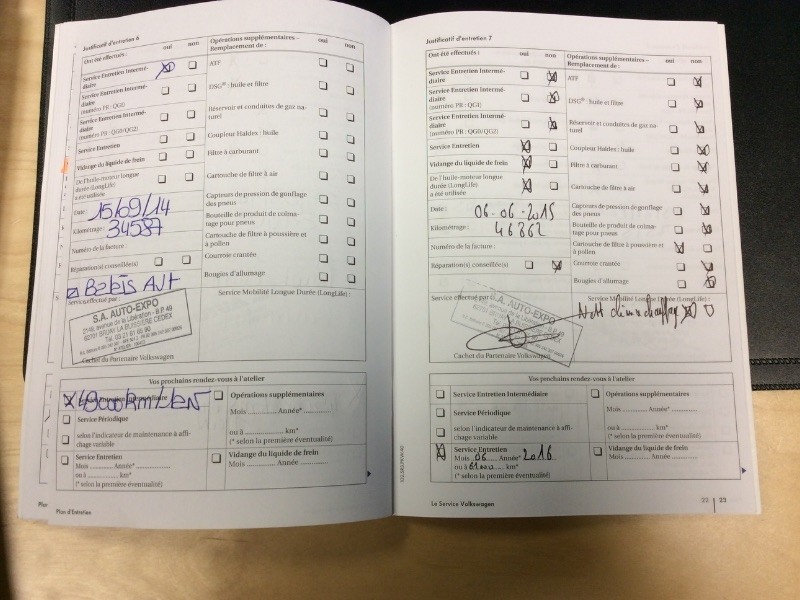 Justificatif d'entretien 6
Ont été effectués :
oui non
Service Entretien Intermé-
diaire
Service Entretien Intermé-
diaire
(numéro PR : QG1)
Service Entretien Intermé-
diaire
(numéro PR : QG0/QG2)
Service Entretien
Vidange du liquide de frein
De l'huile-moteur longue
durée (LongLife)
a été utilisée
Date : 15/09/14
Kilométrage : 34587
Numéro de la facture :
Réparation(s) conseillée(s)
Service effectué par :
S.A. AUTO-EXPO
2149, avenue de la Libération - B.P. 49
62701 BRUAY LA BUISSIERE CEDEX
Cachet du Partenaire Volkswagen
Opérations supplémentaires –
Remplacement de :
oui non
ATF
DSG® : huile et filtre
Réservoir et conduites de gaz na-
turel
Coupleur Haldex : huile
Filtre à carburant
Cartouche de filtre à air
Capteurs de pression de gonflage
des pneus
Bouteille de produit de colma-
tage pour pneus
Cartouche de filtre à poussière et
à pollen
Courroie crantée
Bougies d'allumage
Service Mobilité Longue Durée (LongLife) :
Vos prochains rendez-vous à l'atelier
Service Périodique
selon l'indicateur de maintenance à affi-
chage variable
Service Entretien
Mois ............ Année* ............
ou à ............ km*
(* selon la première éventualité)
Opérations supplémentaires
Mois ............ Année* ............
ou à ............ km*
(* selon la première éventualité)
Vidange du liquide de frein
Mois ............ Année ............
Plan d'Entretien
Justificatif d'entretien 7
Ont été effectués :
oui non
Service Entretien Intermé-
diaire
Service Entretien Intermé-
diaire
(numéro PR : QG1)
Service Entretien Intermé-
diaire
(numéro PR : QG0/QG2)
Service Entretien
Vidange du liquide de frein
De l'huile-moteur longue
durée (LongLife)
a été utilisée
Date : 06-06-2015
Kilométrage : 46862
Numéro de la facture :
Réparation(s) conseillée(s)
Service effectué par :
S.A. AUTO-EXPO
Cachet du Partenaire Volkswagen
Opérations supplémentaires –
Remplacement de :
oui non
ATF
DSG® : huile et filtre
Réservoir et conduites de gaz na-
turel
Coupleur Haldex : huile
Filtre à carburant
Cartouche de filtre à air
Capteurs de pression de gonflage
des pneus
Bouteille de produit de colma-
tage pour pneus
Cartouche de filtre à poussière et
à pollen
Courroie crantée
Bougies d'allumage
Service Mobilité Longue Durée (LongLife) :
Vos prochains rendez-vous à l'atelier
Service Entretien Intermédiaire
Service Périodique
selon l'indicateur de maintenance à affi-
chage variable
Service Entretien
Mois 06 Année* 2016
ou à km*
(* selon la première éventualité)
Opérations supplémentaires
Mois ............ Année* ............
ou à ............ km*
(* selon la première éventualité)
Vidange du liquide de frein
Mois ............ Année ............
Le Service Volkswagen
22 | 23